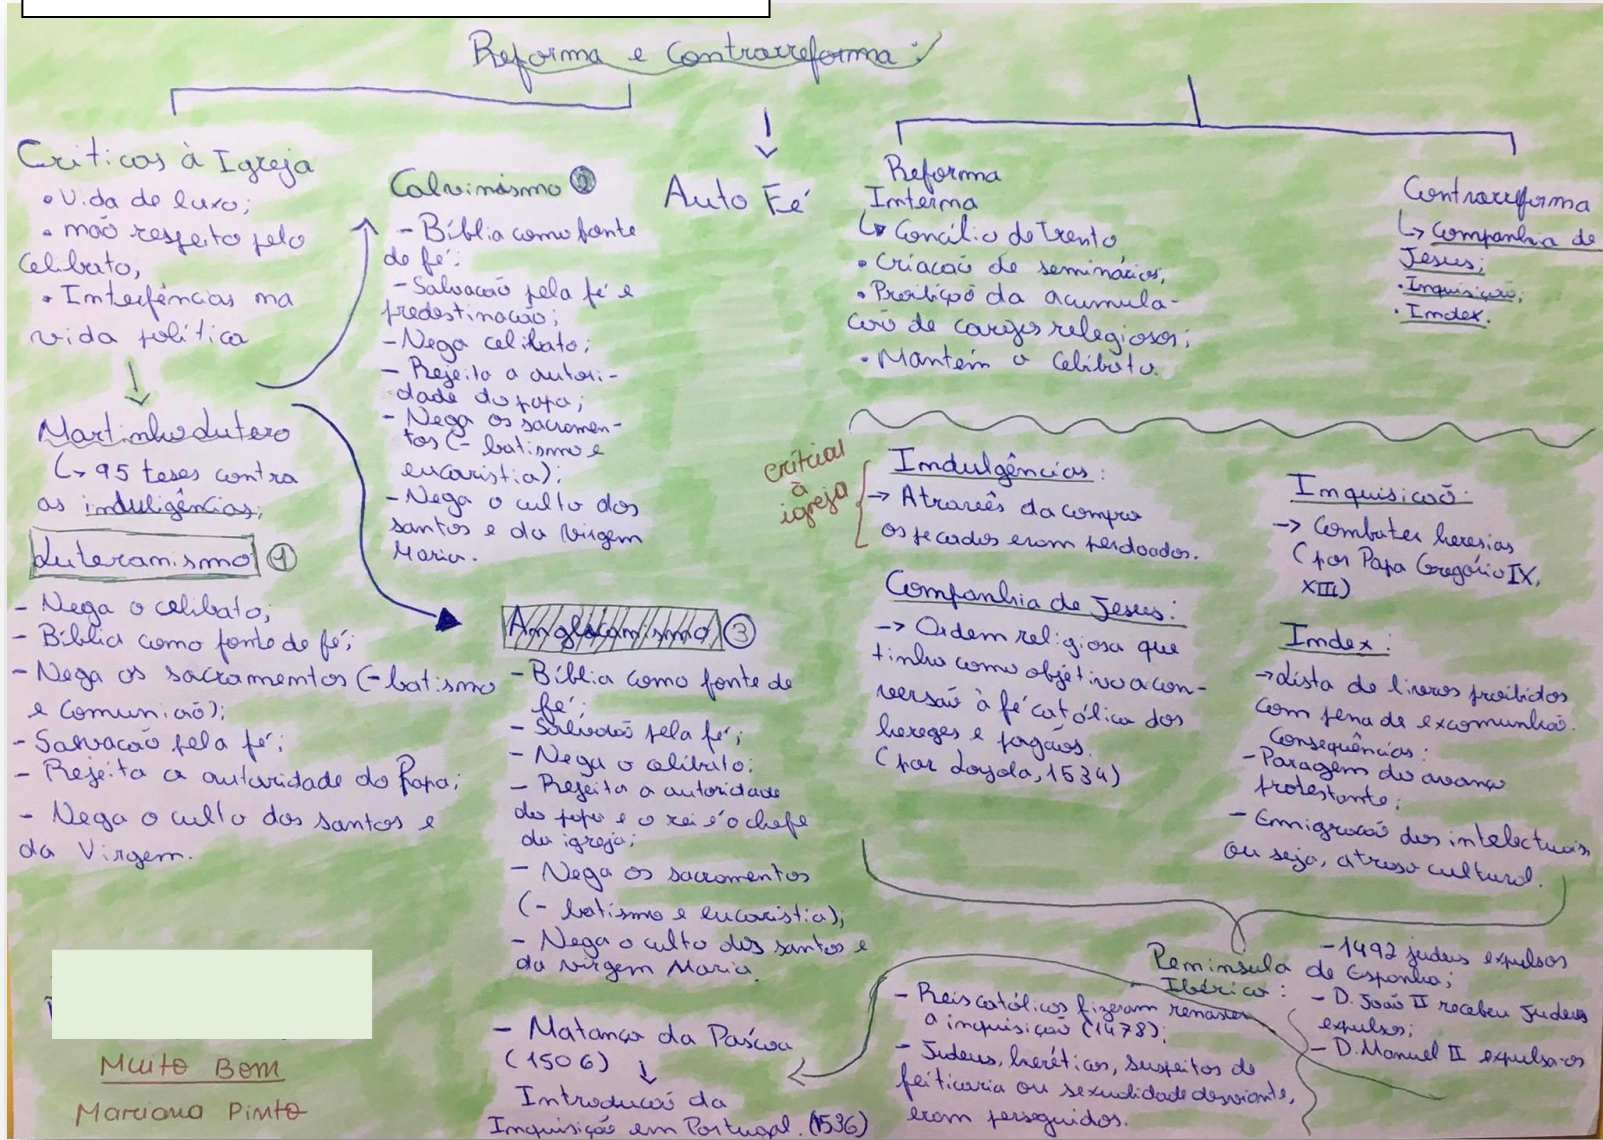 Reforma e Contrarreforma:
Críticas à Igreja
• Vida de luxo;
• não respeito pelo
celibato;
• Interferências na
vida política
Martinho Lutero
↳ 95 teses contra
as induligências;
Luteranismo 1
- Nega o celibato;
- Bíblia como fonte de fé;
- Nega os sacramentos (- batismo
e comunicão);
- Salvacão pela fé;
- Rejeita a autoridade do Papa;
- Nega o culto dos santos e
da Virgem.
Muito Bem
Mariana Pinto
Calvinismo 2
- Bíblia como fonte
de fé;
- Salvacão pela fé e
predestinacão;
- Nega celibato;
- Rejeita a autori-
dade do papa;
- Nega os sacramen-
tos (- batismo e
eucaristia);
- Nega o culto dos
santos e da Virgem
Maria.
Anglicanismo 3
- Bíblia como fonte de
fé;
- Salvacão pela fé;
- Nega o celibato;
- Rejeita a autoridade
do papa e o rei é o chefe
da igreja;
- Nega os sacramentos
(- batismo e eucaristia);
- Nega o culto dos santos e
da virgem Maria.
- Matança da Páscoa
(1506)
Introducão da
Inquisição em Portugal. (1536)
Auto Fé
Reforma
Interna
↳ Concílio de Trento
• Criacão de seminários;
• Proibição da acumula-
cão de cargos relegiosos;
• Mantém o celibato.
Contrarreforma
↳ Companhia de
Jesus;
• Inquisição;
• Index.
crítica
à
igreja
Indulgências:
→ Através da compra
os pecados eram perdoados.
Companhia de Jesus:
→ Ordem religiosa que
tinha como objetivo a con-
versão à fé católica dos
hereges e pagãos.
(por Loyola, 1534)
Inquisicão:
→ Combater heresias
(por Papa Gregório IX,
XIII)
Index:
→ Lista de livros proibidos
com pena de excomunhão.
Consequências:
- Paragem do avanço
protestante;
- Emigracão dos intelectuais
ou seja, atraso cultural.
Peninsula
Ibérica:
- Reis católicos fizeram renascer
a inquisição (1478);
- Judeus, heréticos, suspeitos de
feiticaria ou sexualidade desviante,
eram perseguidos.
- 1492 judeus expulsos
de Espanha;
- D. João II recebeu Judeus
expulsos;
- D. Manuel II expulsa-os